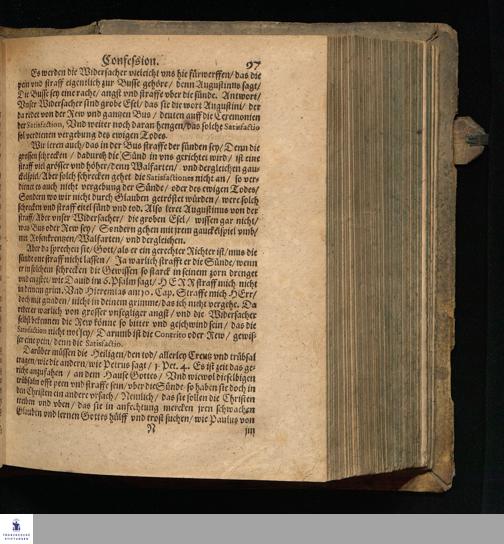 Confession. 97
Es werden die Widersacher vieleicht vns hie fürwerffen/ das die
pen vnd straff eigentlich zur Busse gehöre/ denn Augustinus sagt/
Die Busse sey eine rache/ angst vnd straffe vber die sünde. Antwort/
Vnser Widersacher sind grobe Esel/ das sie die wort Augustini/ der
da redet von der Rew vnd gantzen Bus/ deuten auff die Ceremonien
der Satisfaction, Vnd weiter noch daran hengen/ das solche Satisfactio
sol verdienen vergebung des ewigen Todes.
Wir leren auch/ das in der Bus straffe der sünden sey/ Denn die
grossen schrecken/ dadurch die Sünd in vns gerichtet wird/ ist eine
straff viel grösser vnd höher/ denn Walfarten/ vnd dergleichen gau-
ckelspiel/ Aber solch schrecken gehet die Satisfactiones nicht an/ so ver-
dienet es auch nicht vergebung der Sünde/ oder des ewigen Todes/
Sondern wo wir nicht durch Glauben getröstet würden/ were solch
schrecken vnd straff eitel sünd vnd tod. Also leret Augustinus von der
straff/ Aber vnser Widersacher/ die groben Esel/ wissen gar nicht/
was Bus oder Rew sey/ Sondern gehen mit jrem gauckelspiel vmb/
mit Rosenkrentzen/ Walfarten/ vnd dergleichen.
Aber da sprechen sie/ Gott/ als er ein gerechter Richter ist/ mus die
sünde one straff nicht lassen/ Ja warlich strafft er die Sünde/ wenn
er in solchem schrecken die Gewissen so starck in seinem zorn drenget
vnd engstet/ wie Dauid im 6. Psalm sagt/ HERR straff mich nicht
in deinem grim. Vnd Hieremias am 10. Cap. Straffe mich HErr/
doch mit gnaden/ nicht in deinem grimme/ das ich nicht vergehe. Da
redet er warlich von grosser vnseglicher angst/ vnd die Widersacher
selbst bekennen die Rew könne so bitter vnd geschwind sein/ das die
Satisfaction nicht not sey/ Darumb ist die Contritio oder Rew/ gewis-
ser eine pein/ denn die Satisfactio.
Darüber müssen die Heiligen/ den tod/ allerley Creutz vnd trübsal
tragen/ wie die andern/ wie Petrus sagt/ 1. Pet. 4. Es ist zeit das ge-
richt anzufahen/ an dem Hause Gottes/ Vnd wiewol dieselbigen
trübsaln offt pen vnd straffe sein/ vber die Sünde/ so haben sie doch in
den Christen ein andere vrsach/ Nemlich/ das sie sollen die Christen
treiben vnd vben/ das sie in anfechtung mercken jren schwachen
Glauben vnd lernen Gottes hülff vnd trost suchen/ wie Paulus von
R iij
FRANCKESCHE
STIFTUNGEN